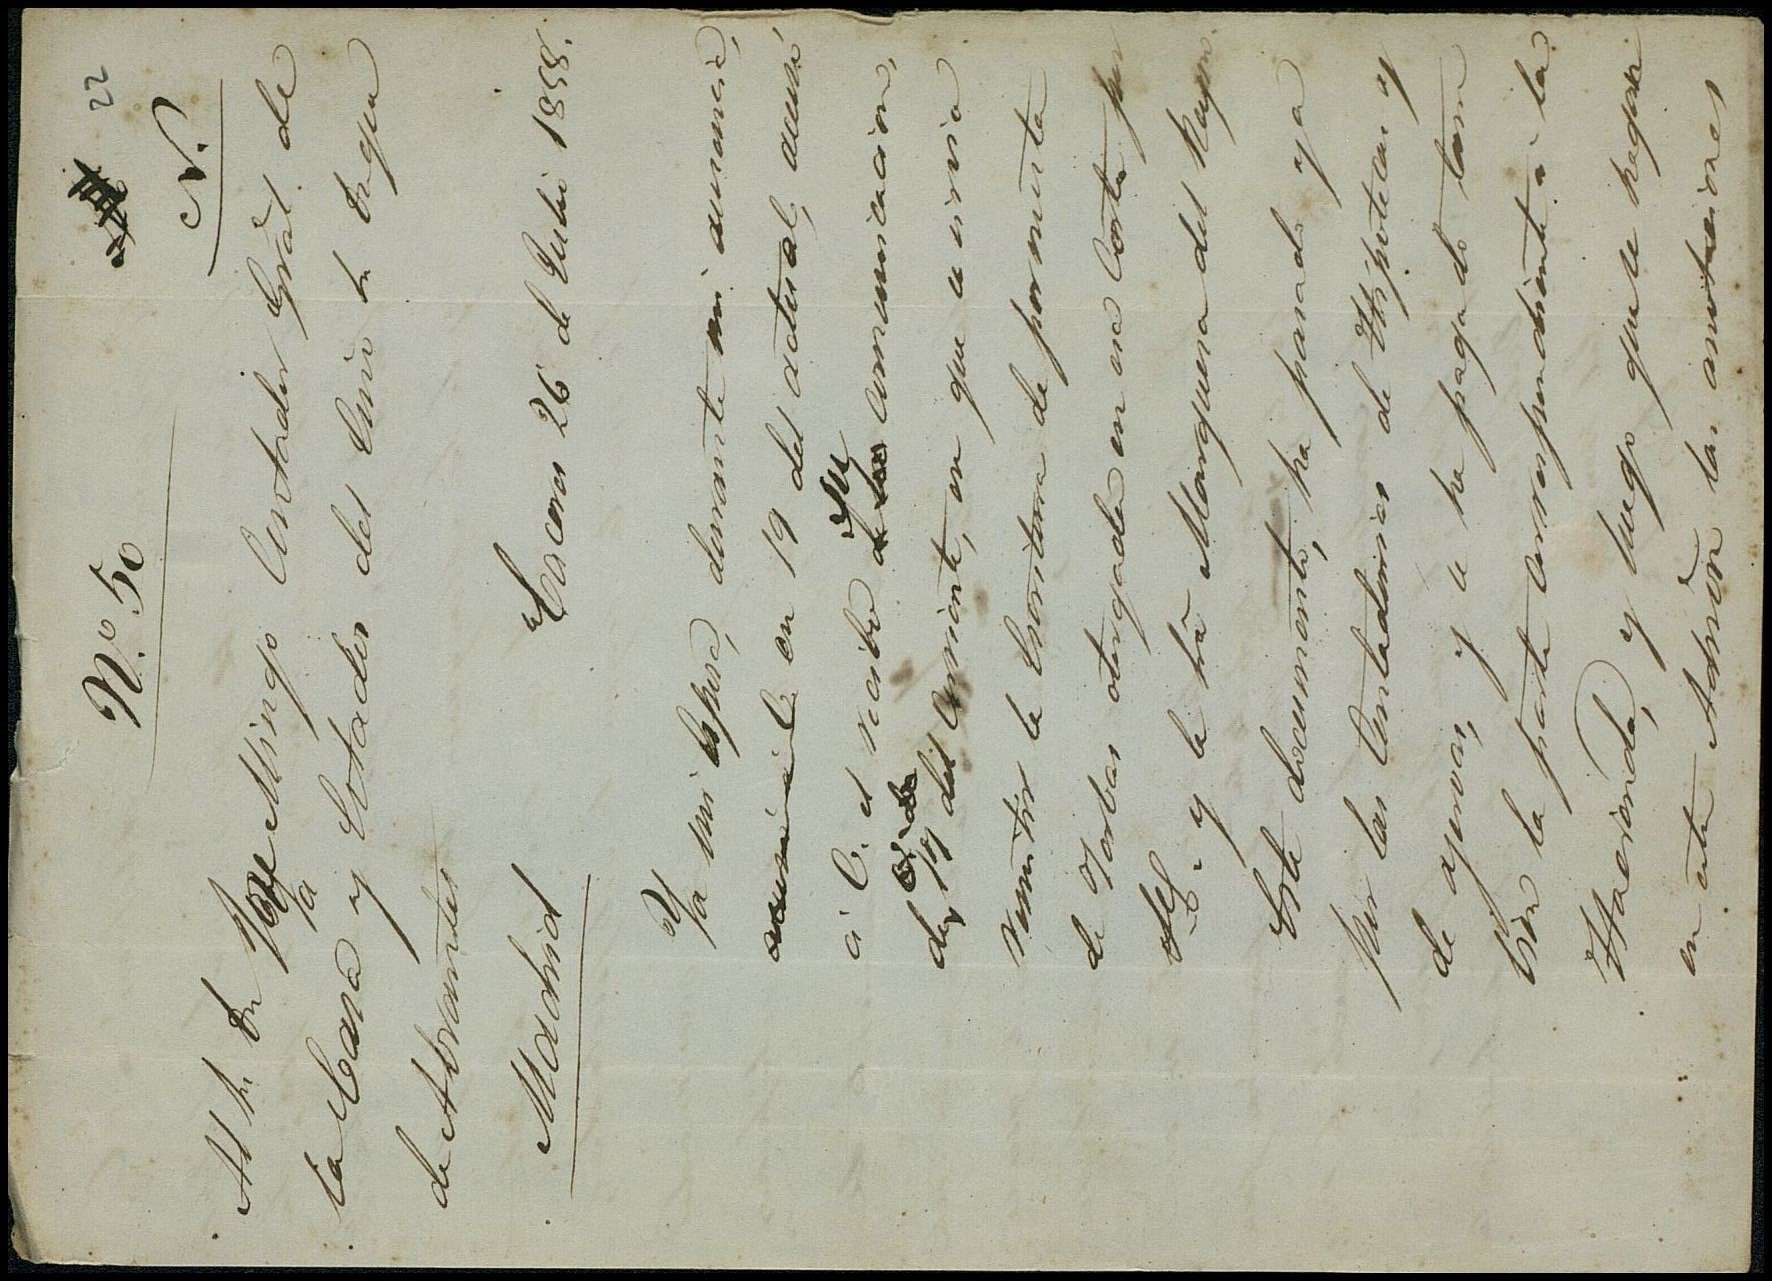 22
N.º 50
N.
Al Sr. Dn José Mª Mingo Contador Gràl. de
la Casa y Estados del Excmo Sr. Duque
de Abrantes
Madrid
Cáceres 26 de Julio 1858.
Ya mi esposa, durante mi ausencia,
en 19 del actual, acusó
á V. el recibo de su comunicacion,
del 17 del corriente, en que se sirvió
remitir la Escritura de permuta
de Yerbas otorgada en esa Corte por
S.E. y la Srã Marquesa del Reyno.
Este documento, ha pasado ya
por las Contadurias de Hipotecas y
de ajenos, y se ha pagado tam
bien la parte correspondiente á la
Hacienda, y luego que se hagan
en esta Admõn las anotaciones